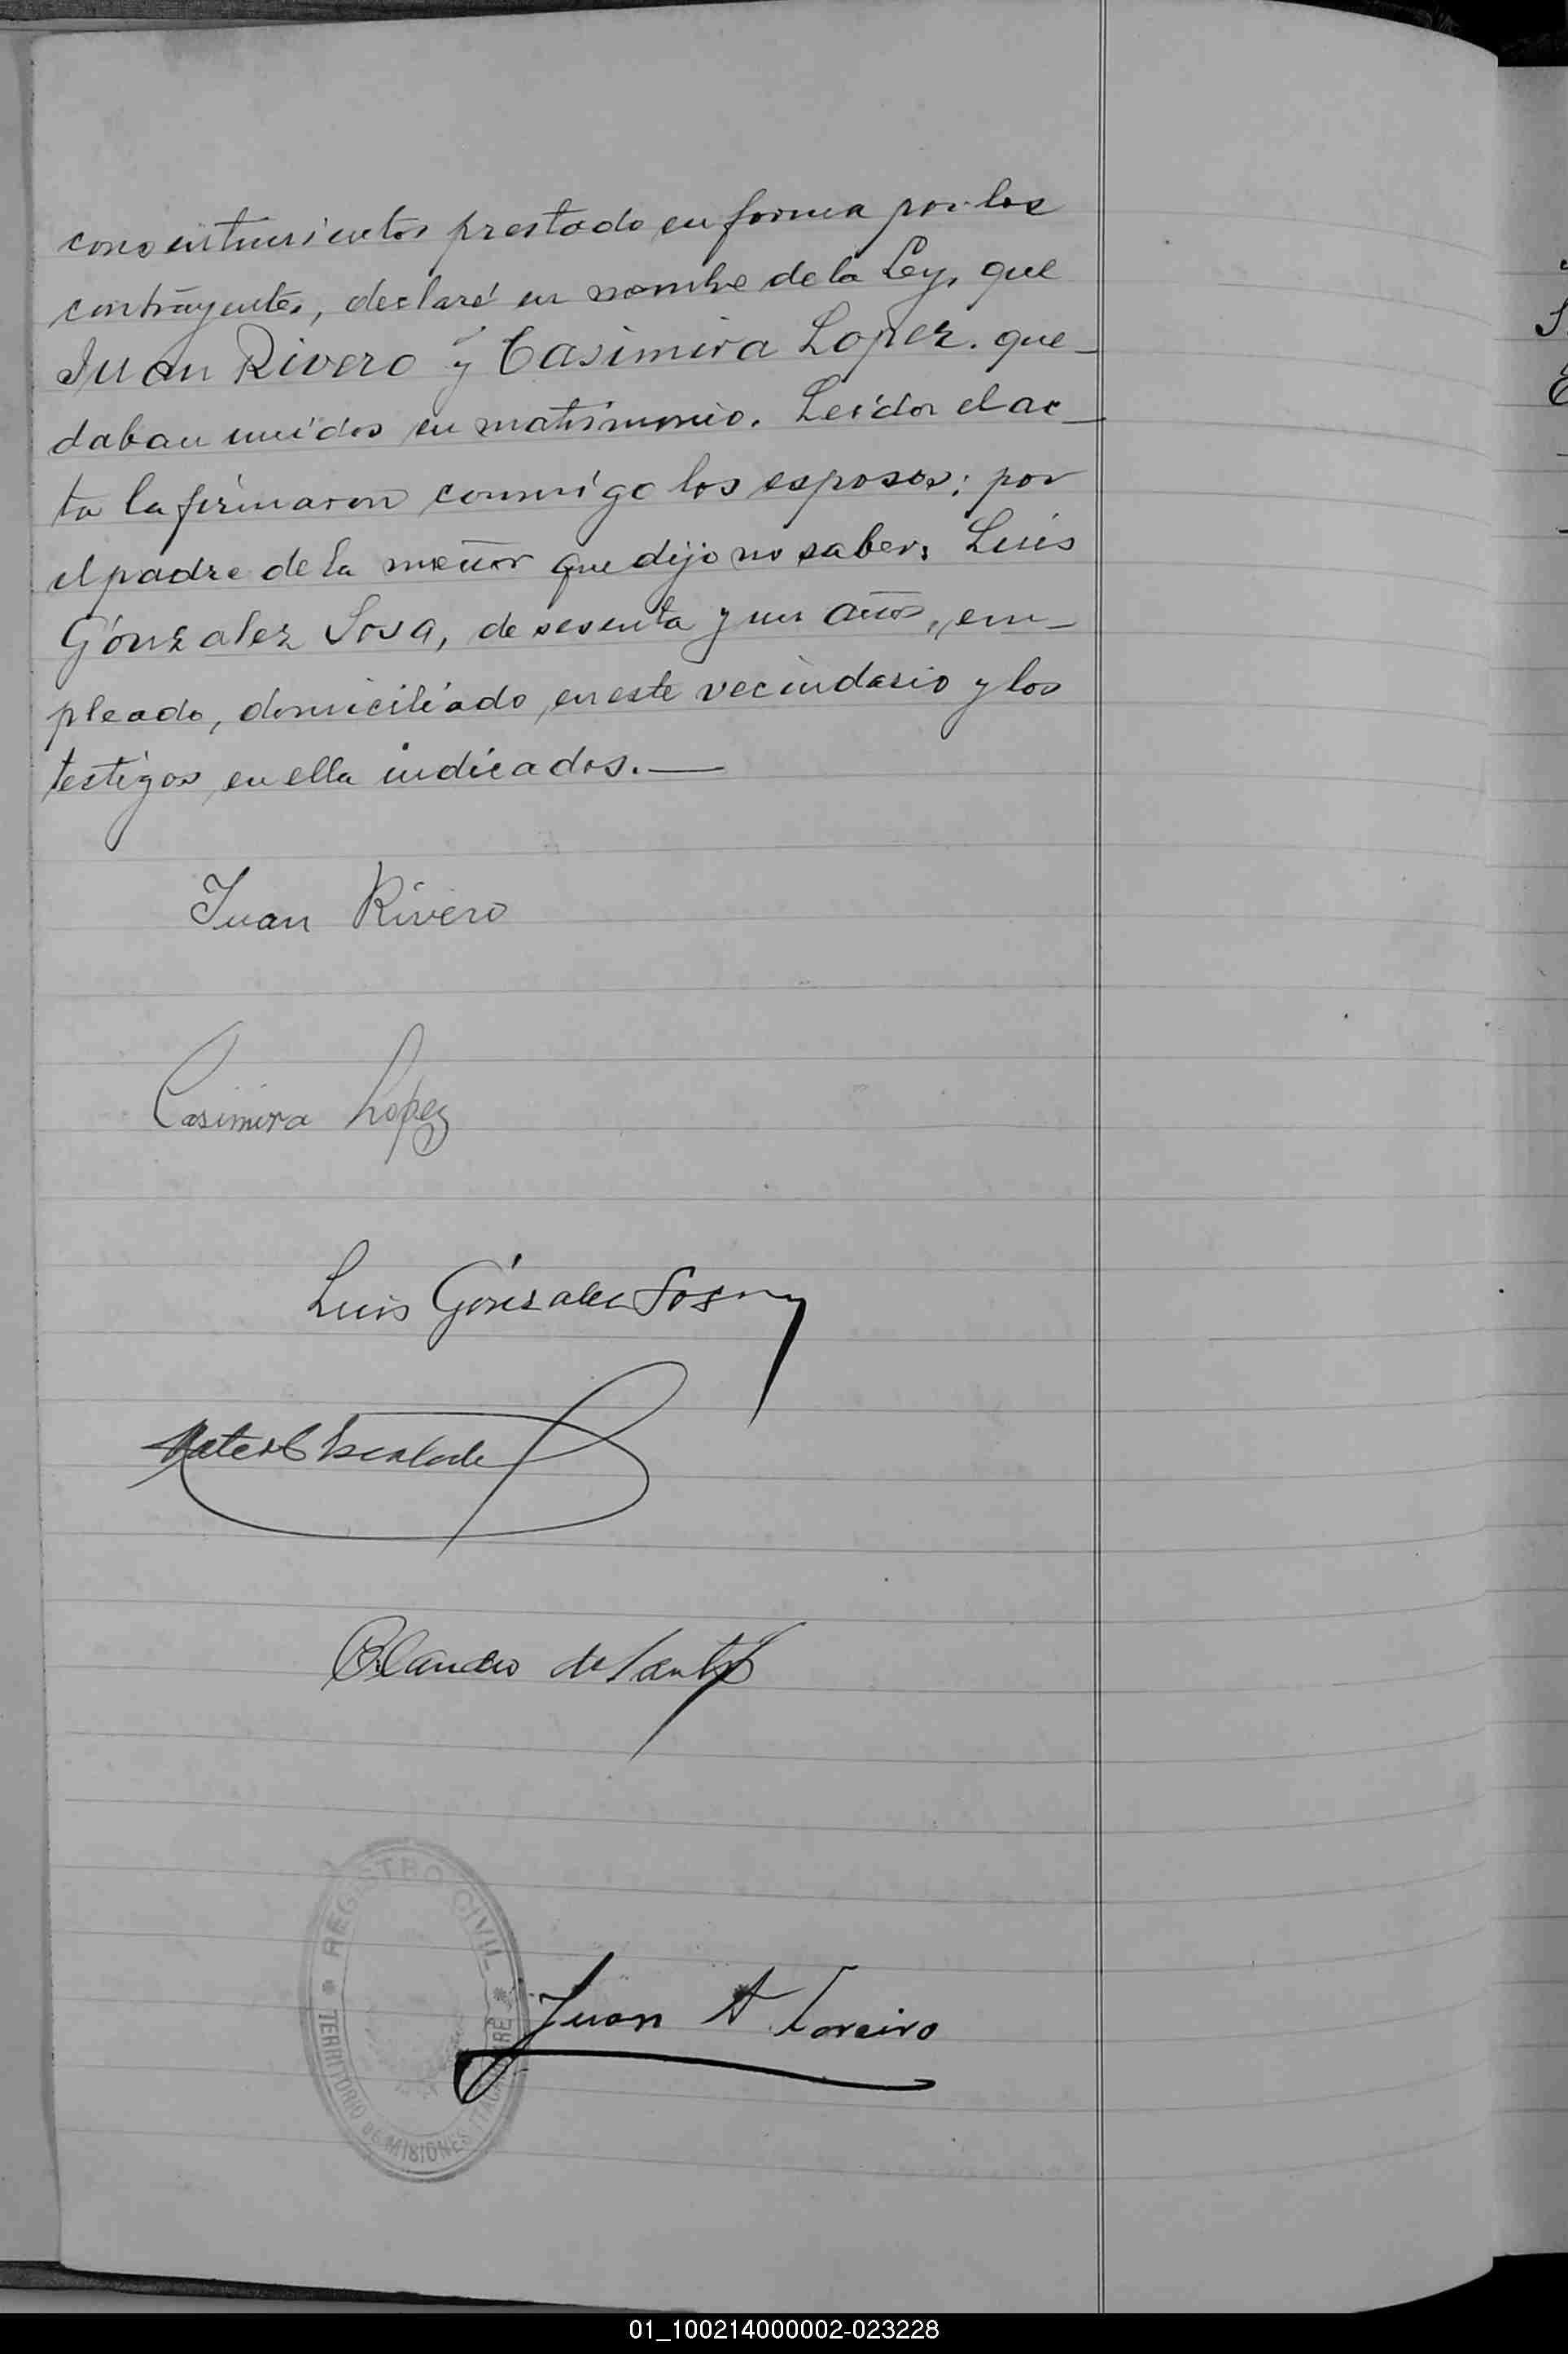 consentimientos prestado en forma por los
contrayentes, declaré en nombre de la Ley, que
Juan Rivero y Casimira Lopez. que-
daban unidos en matrimonio. Leída el ac-
ta la firmaron conmigo los esposos; por
el padre de la menor que dijo no saber, Luis
Gónzalez Sosa, de sesenta y un años, em-
pleado, domiciliado, en este vecindario y los
testigos en ella indicados.—
Juan Rivero
Casimira Lopez
Luis Gónzalez Sosa
Orlando de
REGISTRO CIVIL
TERRITORIO DE MISIONES
Juan A Loreiro
01_100214000002-023228